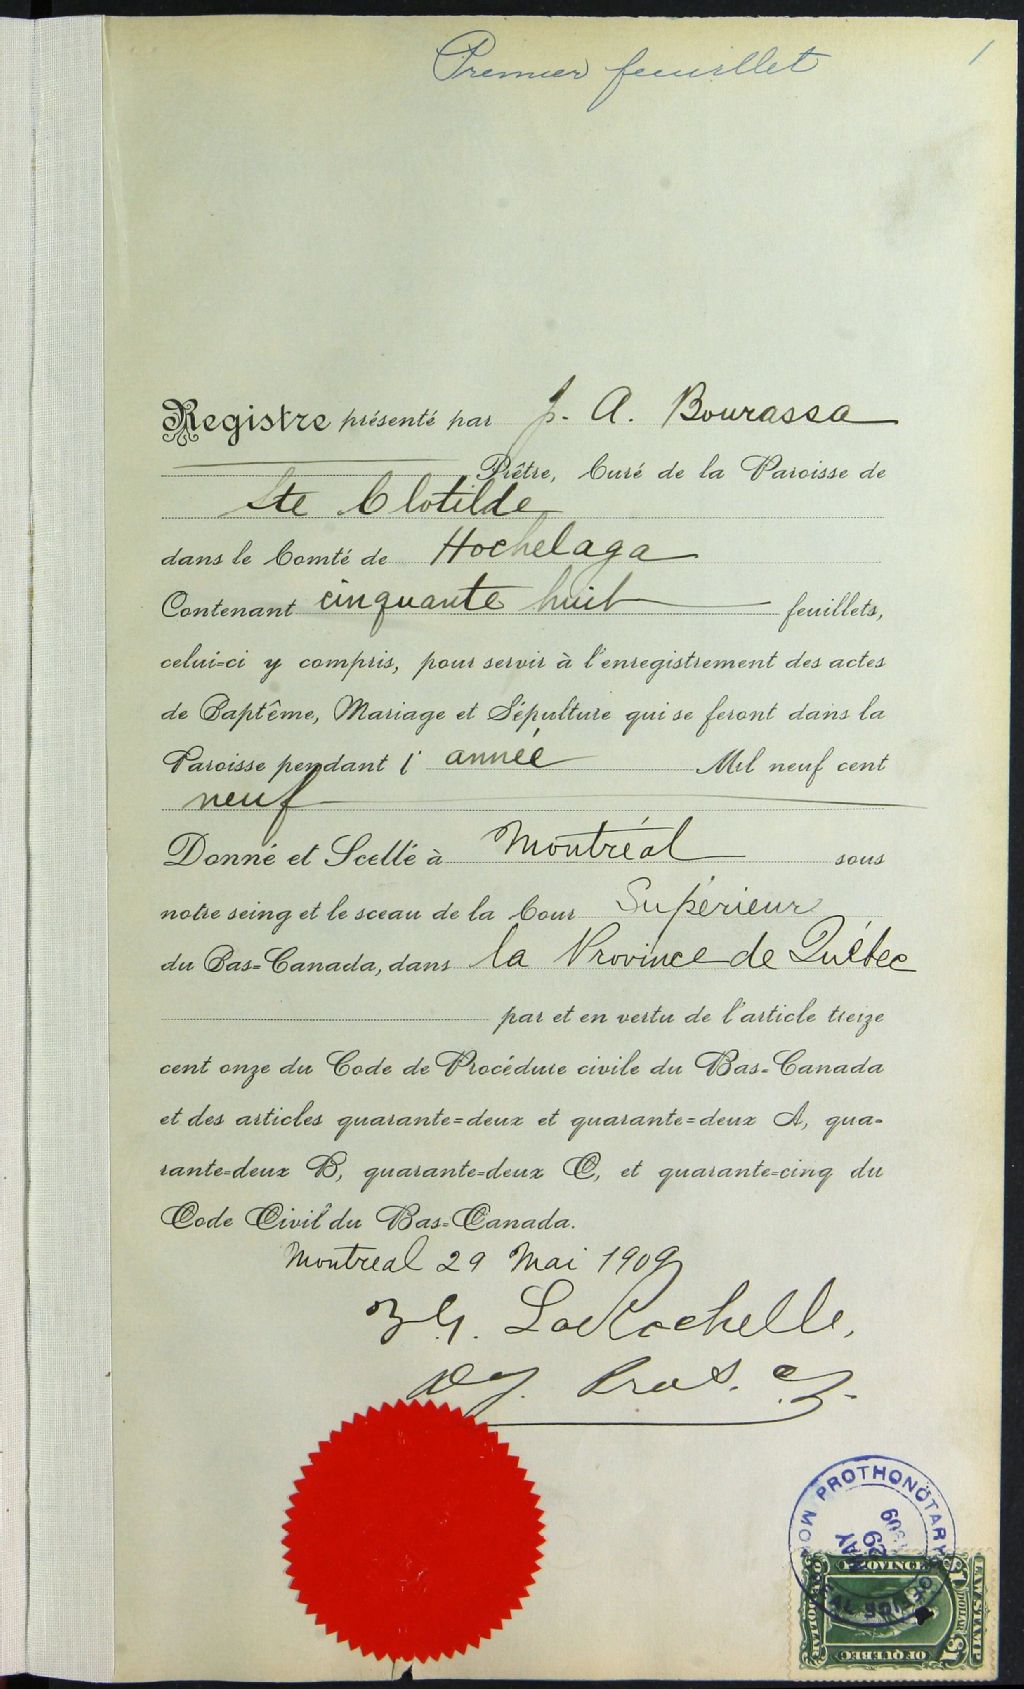 Premier feuillet 1
Registre présenté par J. A. Bourassa
Prêtre, Curé de la Paroisse de
Ste Clotilde
dans le Comté de Hochelaga
Contenant cinquante huit feuillets,
celui-ci y compris, pour servir à l'enregistrement des actes
de Baptême, Mariage et Sépulture qui se feront dans la
Paroisse pendant l' année Mil neuf cent
neuf
Donné et Scellé à Montréal sous
notre seing et le sceau de la Cour Supérieure
du Bas-Canada, dans la Province de Québec
par et en vertu de l'article treize
cent onze du Code de Procédure civile du Bas-Canada
et des articles quarante-deux et quarante-deux A, qua-
rante-deux B, quarante-deux C, et quarante-cinq du
Code Civil du Bas-Canada.
Montreal 29 Mai 1909
LaRochelle,
PROTHONOTARY'S OFFICE
29 MAY 1909
PROVINCE
OF QUEBEC
LAW STAMP
$1 DOLLAR $1
ONE DOLLAR